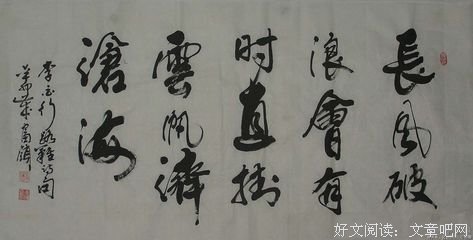 長风破
浪會有
时直掛
雲帆濟
滄海
李白行路難诗句
好文阅读：文章吧网